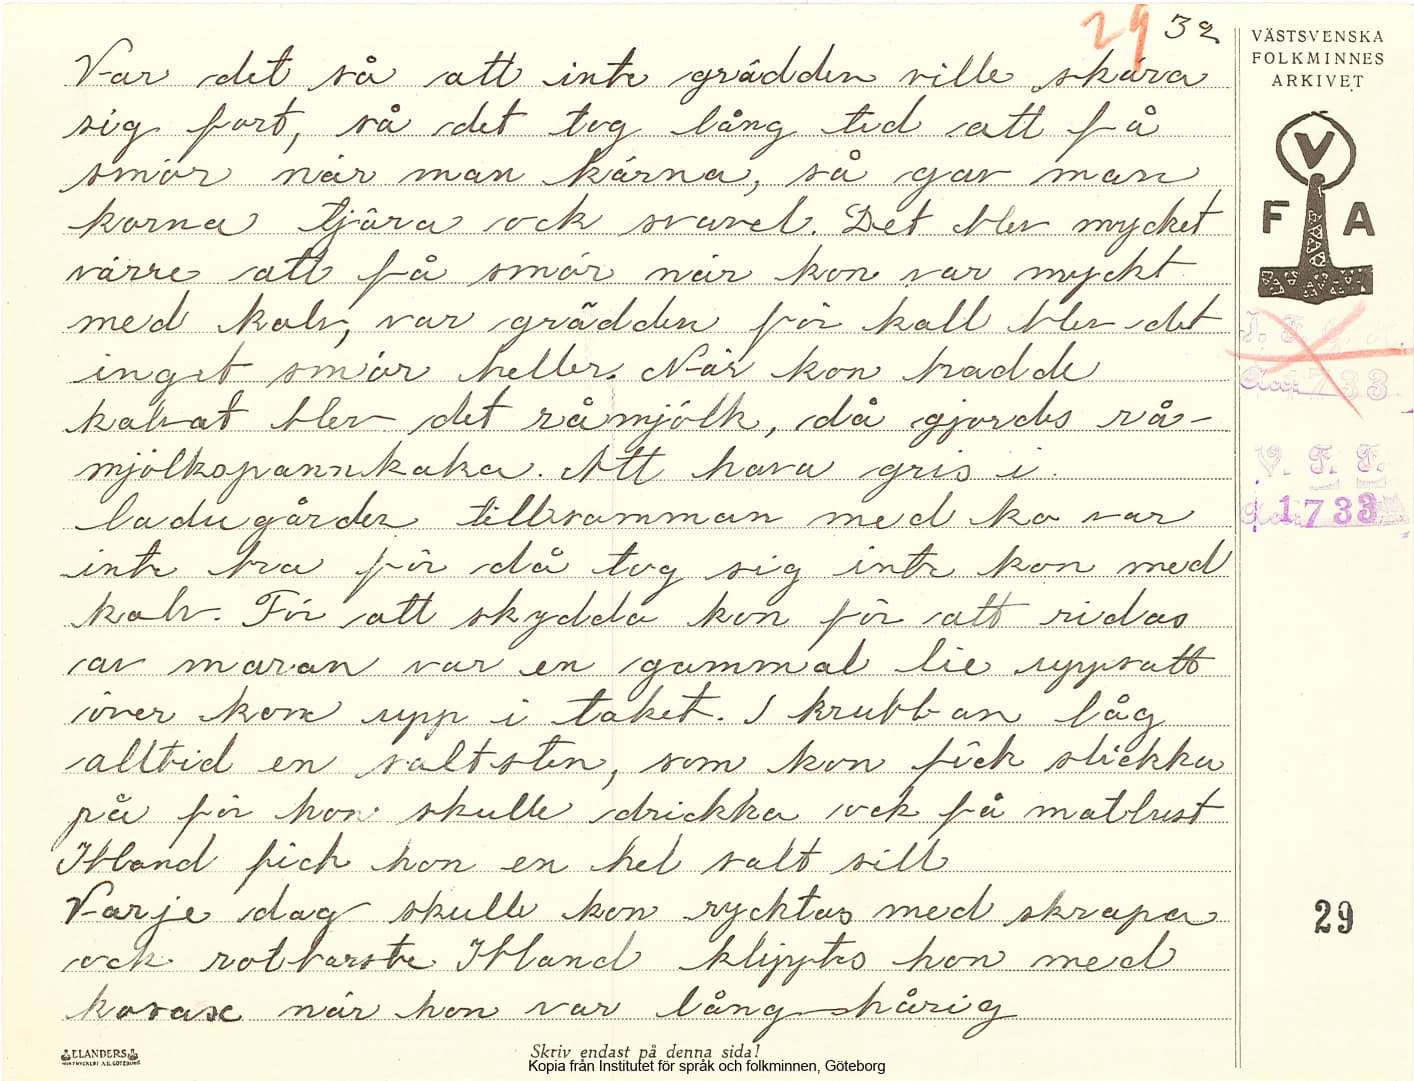 29 32
Var det så att inte grädden ville skära
sig fort, så det tog lång tid att få
smör när man kärna, så gav man
korna tjära ock svavel. Det blev mycket
värre att få smör när kon var myckt
med kalv, var grädden för kall blev det
inget smör heller. När kon hadde
kalvat blev det råmjölk, då gjordes rå-
mjölkspannkaka. Att hava gris i
ladugården tillsamman med ko var
inte bra för då tog sig inte kon med
kalv. För att skydda kon för att ridas
av maran var en gammal lie uppsatt
över kon upp i taket. I krubban låg
alltid en saltsten, som kon fick slickka
på för hon skulle drickka ock få matlust
Ibland fick hon en hel salt sill
Varje dag skulle kon ryktas med skrapa
ock rotborste Ibland klipptes hon med
kosax när hon var lång hårig
VÄSTSVENSKA
FOLKMINNES
ARKIVET
V
F A
I. F. G. H.
Acc. 733
V. F. F.
Acc. 1733
29
ELANDERS
BOKTRYCKERI A.B. GÖTEBORG
Skriv endast på denna sida!
Kopia från Institutet för språk och folkminnen, Göteborg